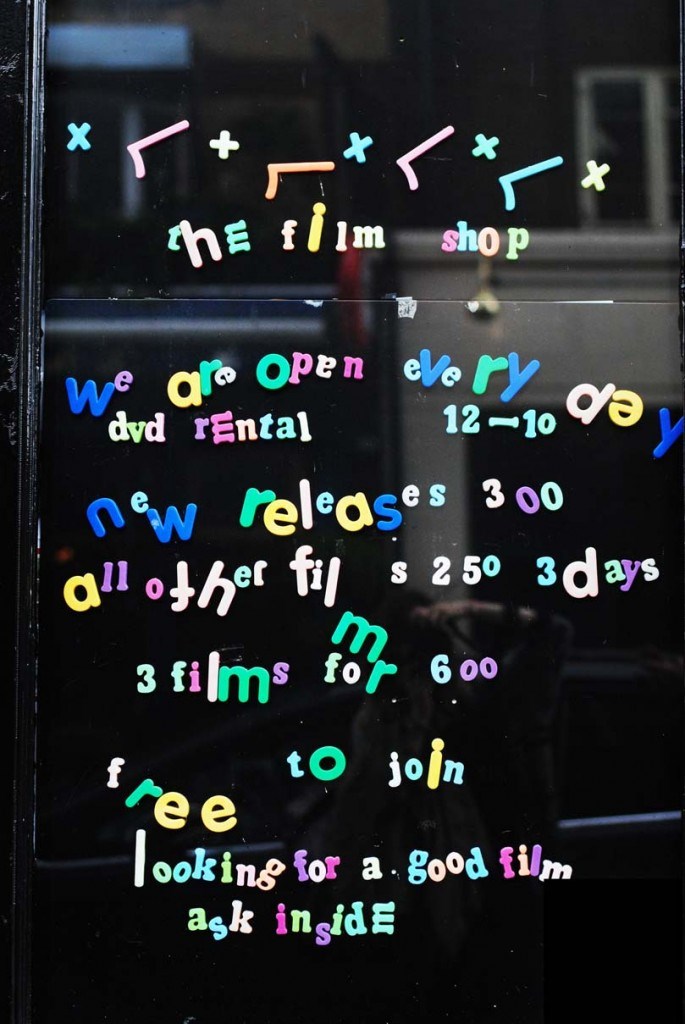 the film shop
we are open every day
dvd rental 12-10
new releases 300
all other films 250 3days
3 films for 600
free to join
looking for a. good film
ask inside